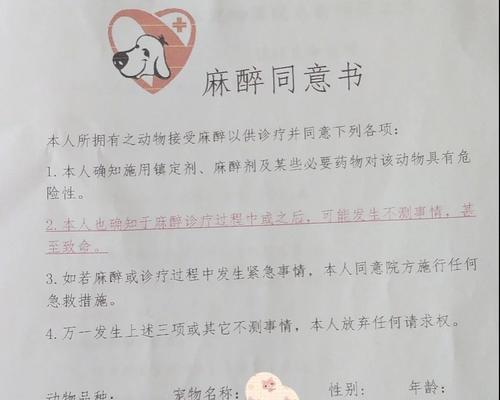 麻醉同意书
本人所拥有之动物接受麻醉以供诊疗并同意下列各项:
1.本人确知施用镇定剂、麻醉剂及某些必要药物对该动物具有危
险性。
2.本人也确知于麻醉诊疗过程中或之后,可能发生不测事情,甚
至致命。
3.如若麻醉或诊疗过程中发生紧急事情,本人同意院方施行任何
急救措施。
4.万一发生上述三项或其它不测事情,本人放弃任何请求权。
动物品种: 宠物名称: 性别: 年龄: